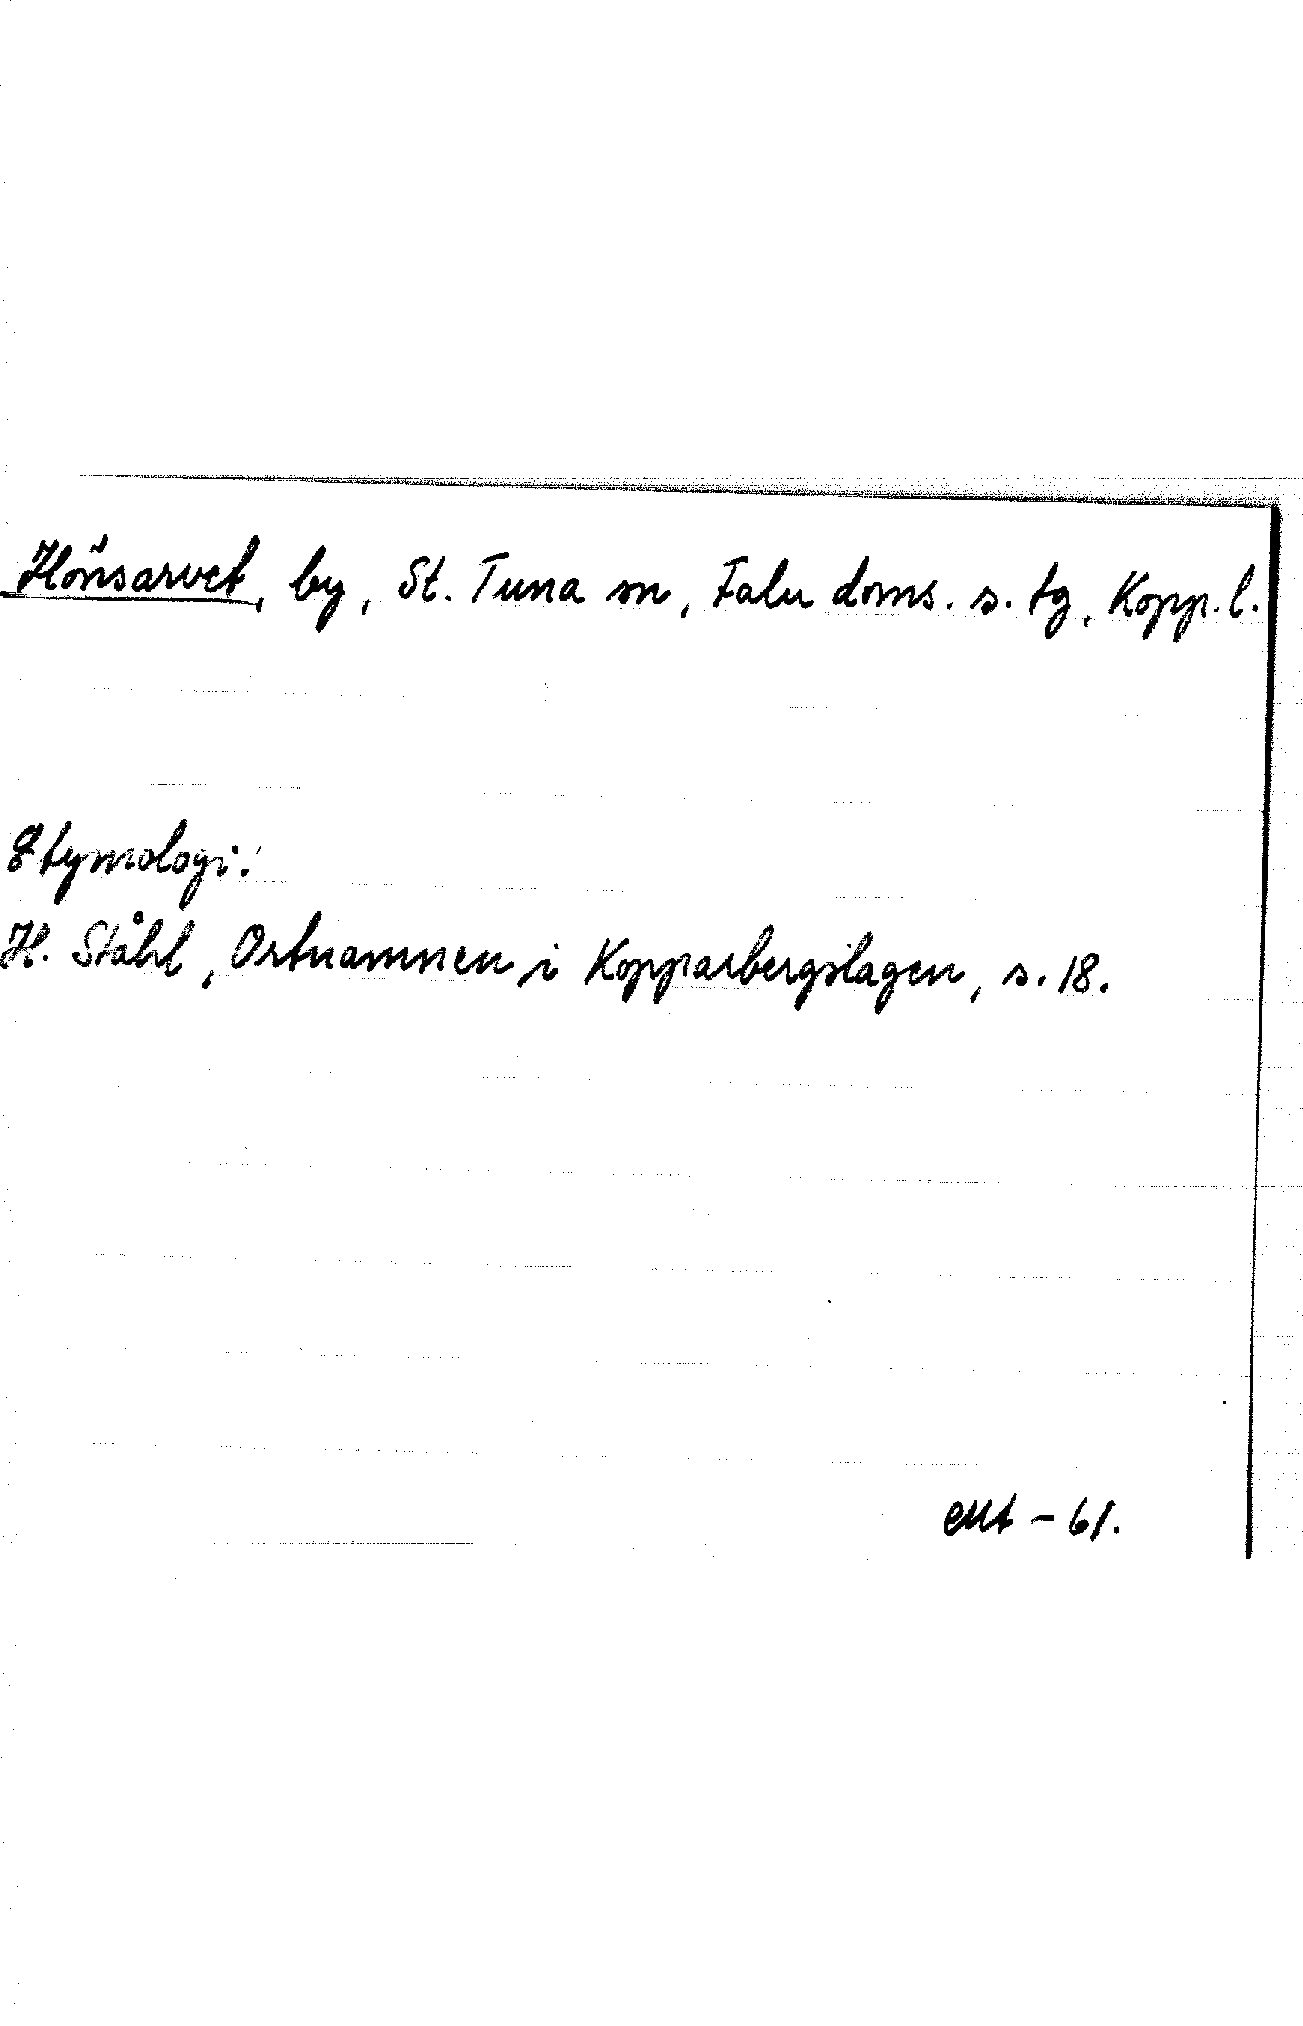 Hönsarvet, by, St. Tuna sn, Falu doms. s. tg, Kopp. l.
Etymologi:
H. Ståhl, Ortnamnen i Kopparbergslagen, s. 18.
- 61.